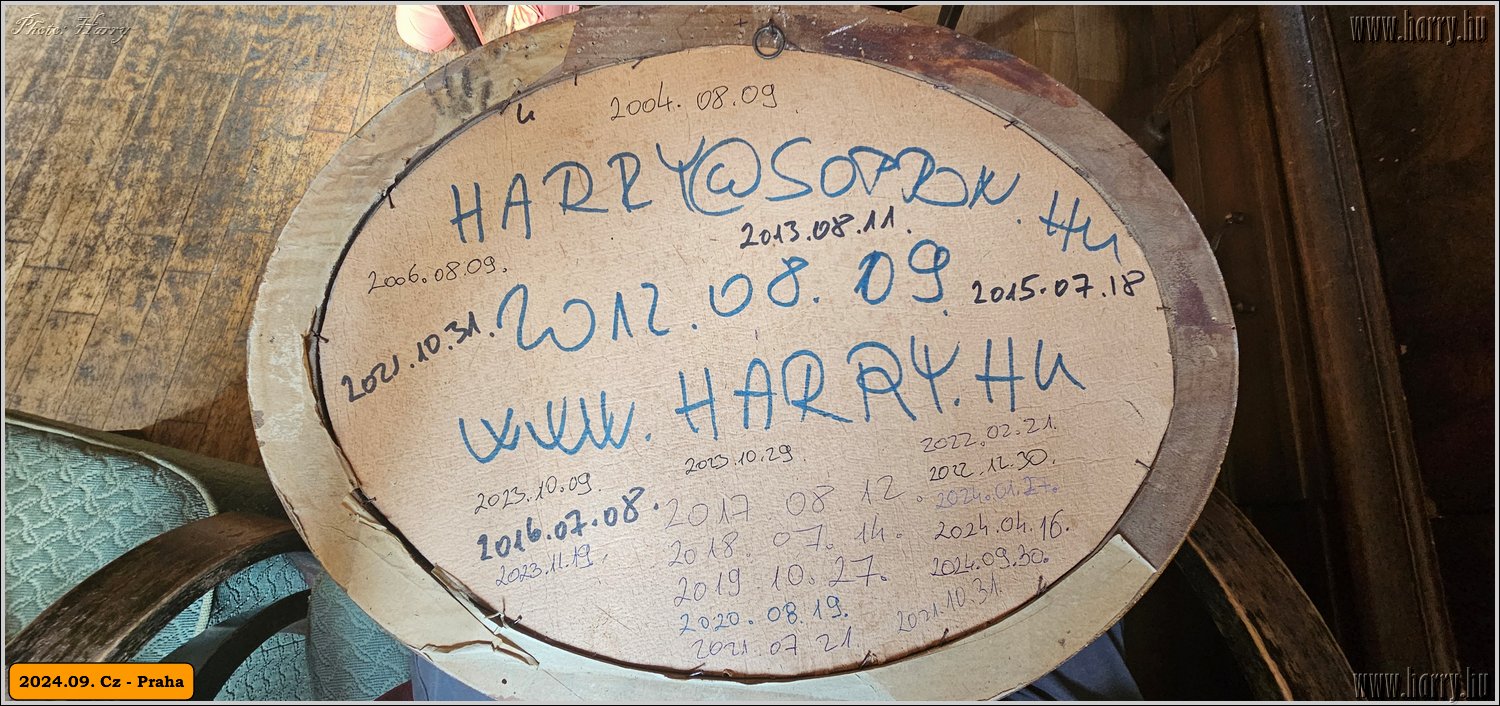 Photo: Harry
www.harry.hu
2004. 08.09
HARRY@SOPRON.HU
2013.08.11.
2006.08.09.
2012.08.09.
2015.07.18
2021.10.31.
WWW.HARRY.HU
2022.02.21.
2023.10.29.
2022.12.30.
2023.10.09.
2017.08 12.
2024.01.27.
2016.07.08.
2018.07.14.
2024.04.16.
2023.11.19.
2019 10.27.
2024.09.30.
2020.08.19.
2021.10.31.
2021.07 21.
2024.09. Cz - Praha
www.harry.hu